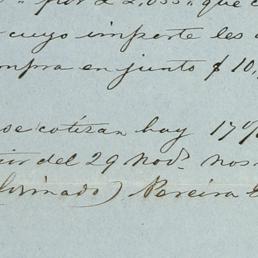 por £ 2,055". que c
cuyo importe les a
ompra en junto $ 10,
se cotizan hoy 17%
del 29 Novᵉ. nos
firmado) Pereira